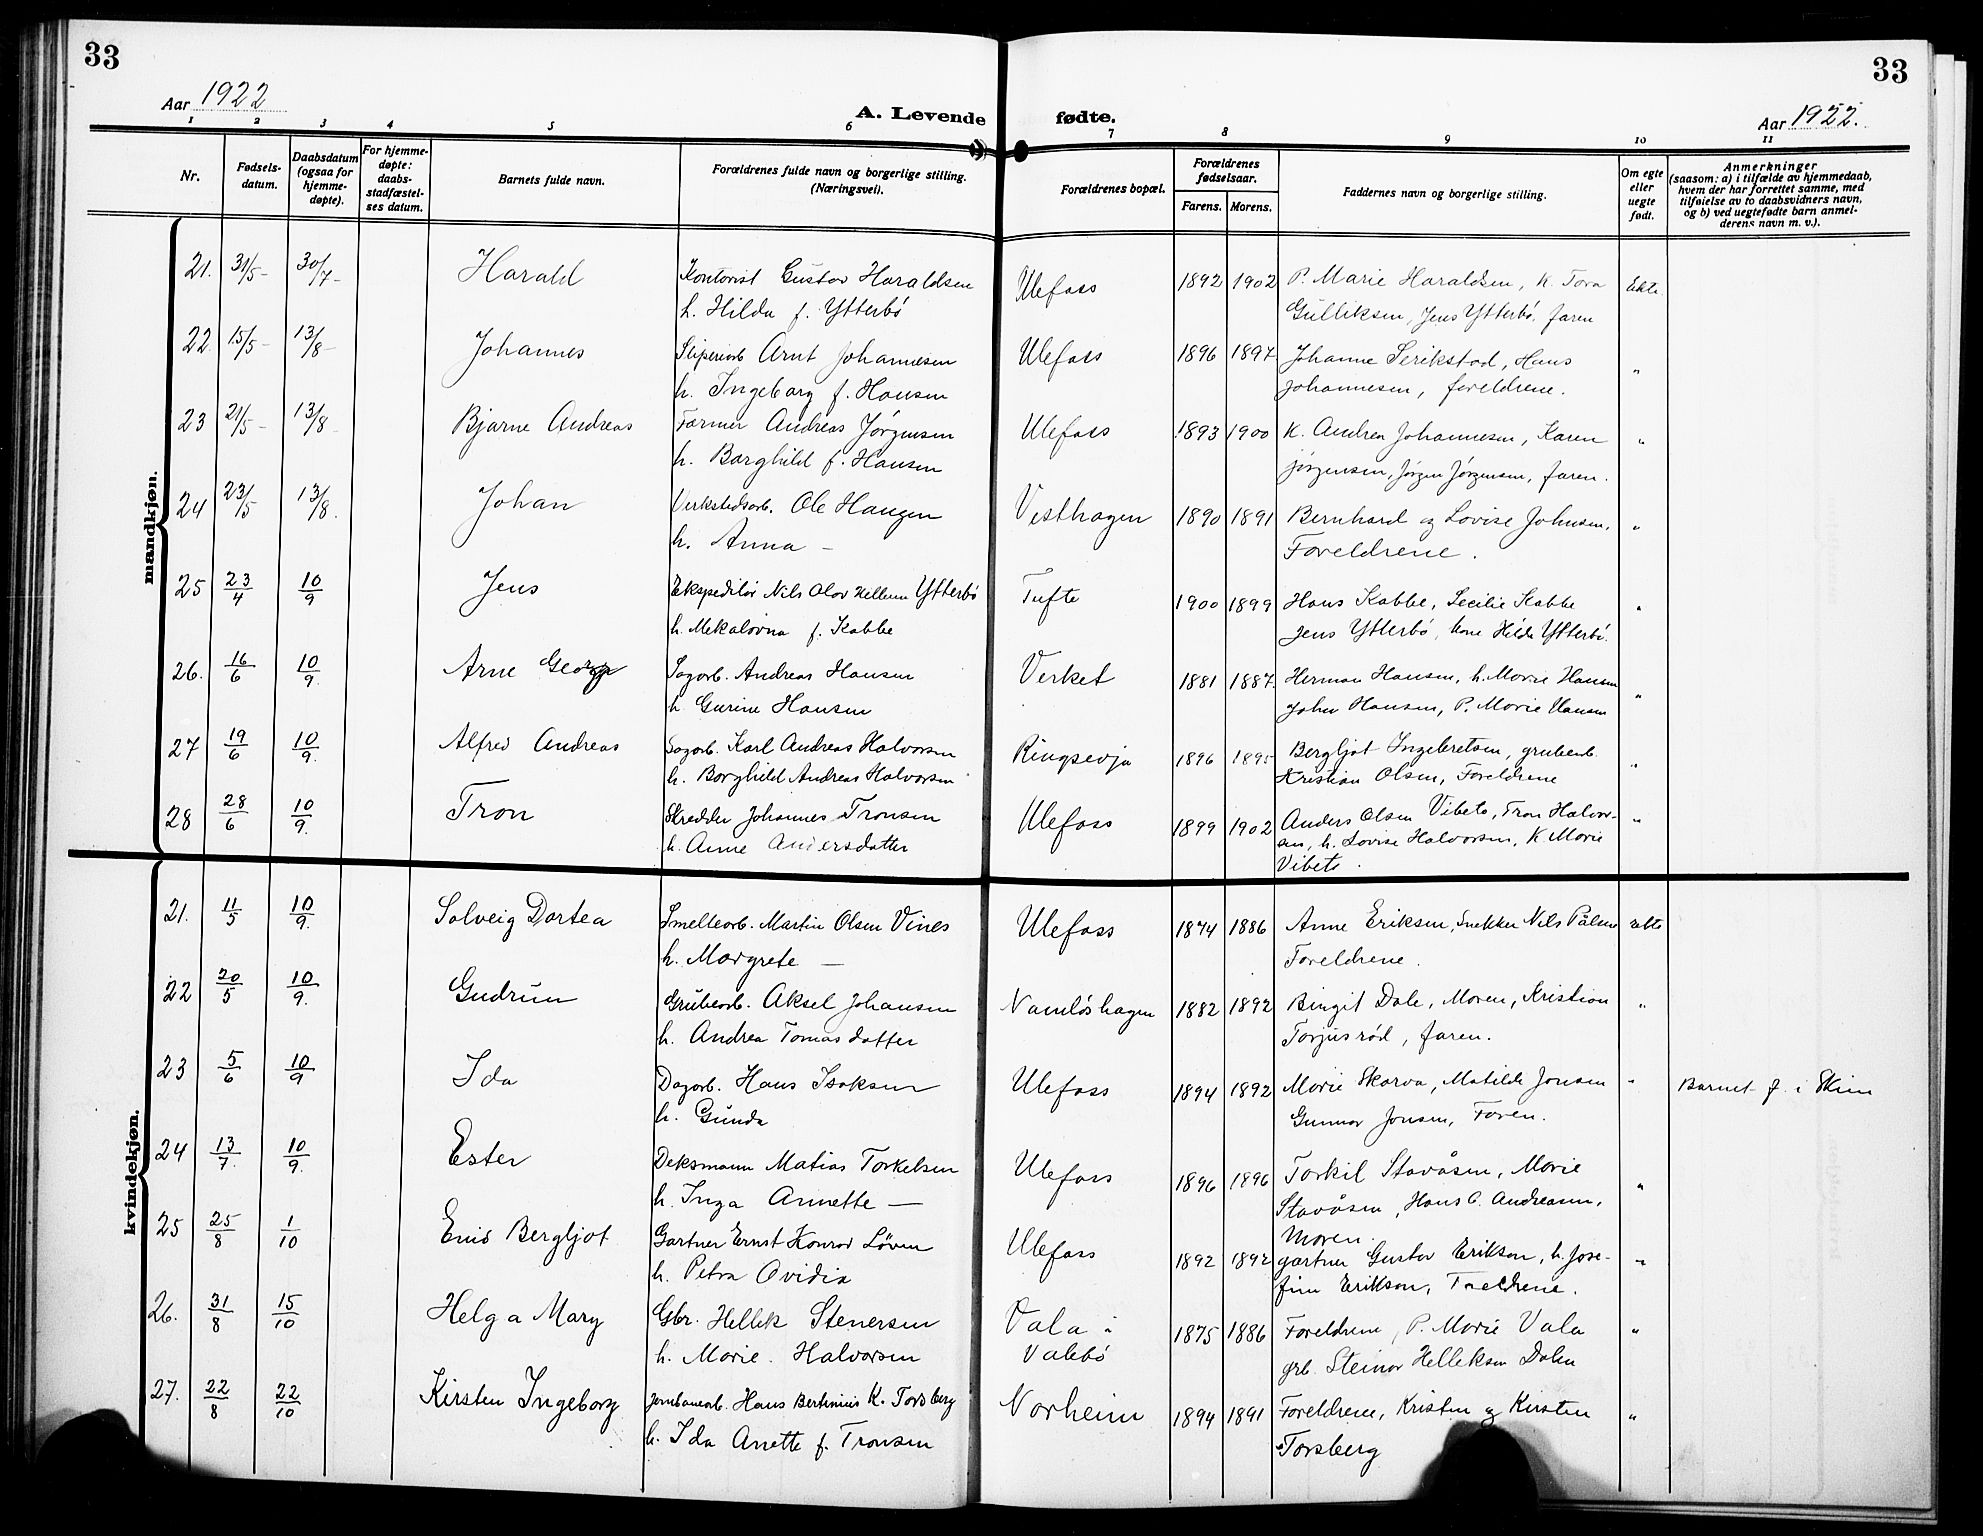 33
33
Aar 1922
A. Levende fødte.
Aar 1922.
1 2 3 4 5 6 7 8 9 10 11
Nr.
Fødsels-
datum.
Daabsdatum
(ogsaa for
hjemme-
døpte).
For hjemme-
døpte:
daabs-
stadfæstel-
ses datum.
Barnets fulde navn.
Forældrenes fulde navn og borgerlige stilling.
(Næringsvei).
Forældrenes bopæl.
Forældrenes
fødselsaar.
Farens. Morens.
Faddernes navn og borgerlige stilling.
Om egte
eller
uegte
født.
Anmerkninger
(saasom: a) i tilfælde av hjemmedaab,
hvem der har forrettet samme, med
tilføielse av to daabsvidners navn,
og b) ved uegtefødte barn anmel-
derens navn m. v.).
mandkjøn.
21. 31/5- 30/7- Harald Kontorist Gustav Haraldsen Ulefoss 1892 1902 P. Marie Haraldsen, K. Tora Ekte
h. Hilda f. Ytterbø Gulliksen, Jens Ytterbø, faren
22 15/5- 13/8- Johannes Sliperiarb Arnt Johannesen Ulefoss 1896 1897. Johanne Serikstad, Hans "
h. Ingeborg f. Hansen Johannesen, foreldrene.
23 21/5- 13/8- Bjarne Andreas Farmer Andreas Jørgensen Ulefoss 1893 1900 K. Andrea Johannesen, Karen "
h. Borghild f. Hansen Jørgensen, Jørgen Jørgensen, faren.
24 23/5 13/8. Johan Verkstedsarb. Ole Haugen Vesthagen 1890 1891 Bernhard og Lovise Johnsen, "
h. Anna — Foreldrene.
25 23/4 10/9 Jens Ekspeditør Nils Olav Hellem Ytterbø Tufte 1900 1899 Hans Kabbe, Secilie Kabbe "
h. Mekalovna f. Kabbe Jens Ytterbø, kone Hilda Ytterbø.
26. 16/6 10/9. Arne Georg Sagarb. Andreas Hansen Verket 1881 1887. Herman Hansen, h. Marie Hansen "
h. Gurine Hansen John Hansen, P. Marie Hansen
27 19/6 10/9. Alfred Andreas Sagarb. Karl Andreas Halvorsen Ringsevja 1896 1895 Bergljot Ingebretsen, grubearb. "
h. Borghild Andreas Halvorsen Kristian Olsen, Foreldrene
28 28/6 10/9. Tron Skredder Johannes Tronsen Ulefoss 1899 1902 Anders Olsen Vibeto, Tron Halvor- "
h. Anne Andersdatter sen, h. Lovise Halvorsen, K. Marie
Vibeto.
kvindekjøn.
21. 11/5 10/9. Solveig Dortea Smeltearb. Martin Olsen Vines Ulefoss 1874 1886 Anne Eriksen, Snekker Nils Pålsen ekte
h. Margrete — Foreldrene.
22 20/5 10/9. Gudrun Grubearb. Aksel Johansen Namløshagen 1882 1892 Bingit Dale, Moren, Kristian "
h. Andrea Tomasdatter Torjusrød, faren.
23 5/6 10/9 Ida Dagarb. Hans Isaksen Ulefoss 1894 1892 Marie Skarva, Matilde Jonsen " Barnet f. i Skien
h. Gunda Gunnar Jonsen, Faren.
24 13/7. 10/9. Ester Deksmann Matias Torkelsen Ulefoss 1896 1896 Torkil Stavåsen, Marie "
h. Inga Annette — Stavåsen, Hans C. Andreasen,
Moren.
25 25/8 1/10 Enid Bergljot Gartner Ernst Konrad Løven Ulefoss 1892 1892 gartner Gustav Erikson, h. Jose- "
h. Petra Ovidia fine Erikson, Foreldrene.
26. 31/8 15/10 Helga Mary Gbr. Hellek Stenersen Vala i 1875 1886 Foreldrene, P. Marie Vala "
h. Marie. Halvorsen Valebø grb. Steinar Helleksen Dalen
27. 22/8 22/10 Kirsten Ingeborg Jernbanearb. Hans Bertinius K. Torsberg Norheim 1894 1891 Foreldrene, Kristen og Kirsten "
h. Ida Anette f. Tronsen Torsberg